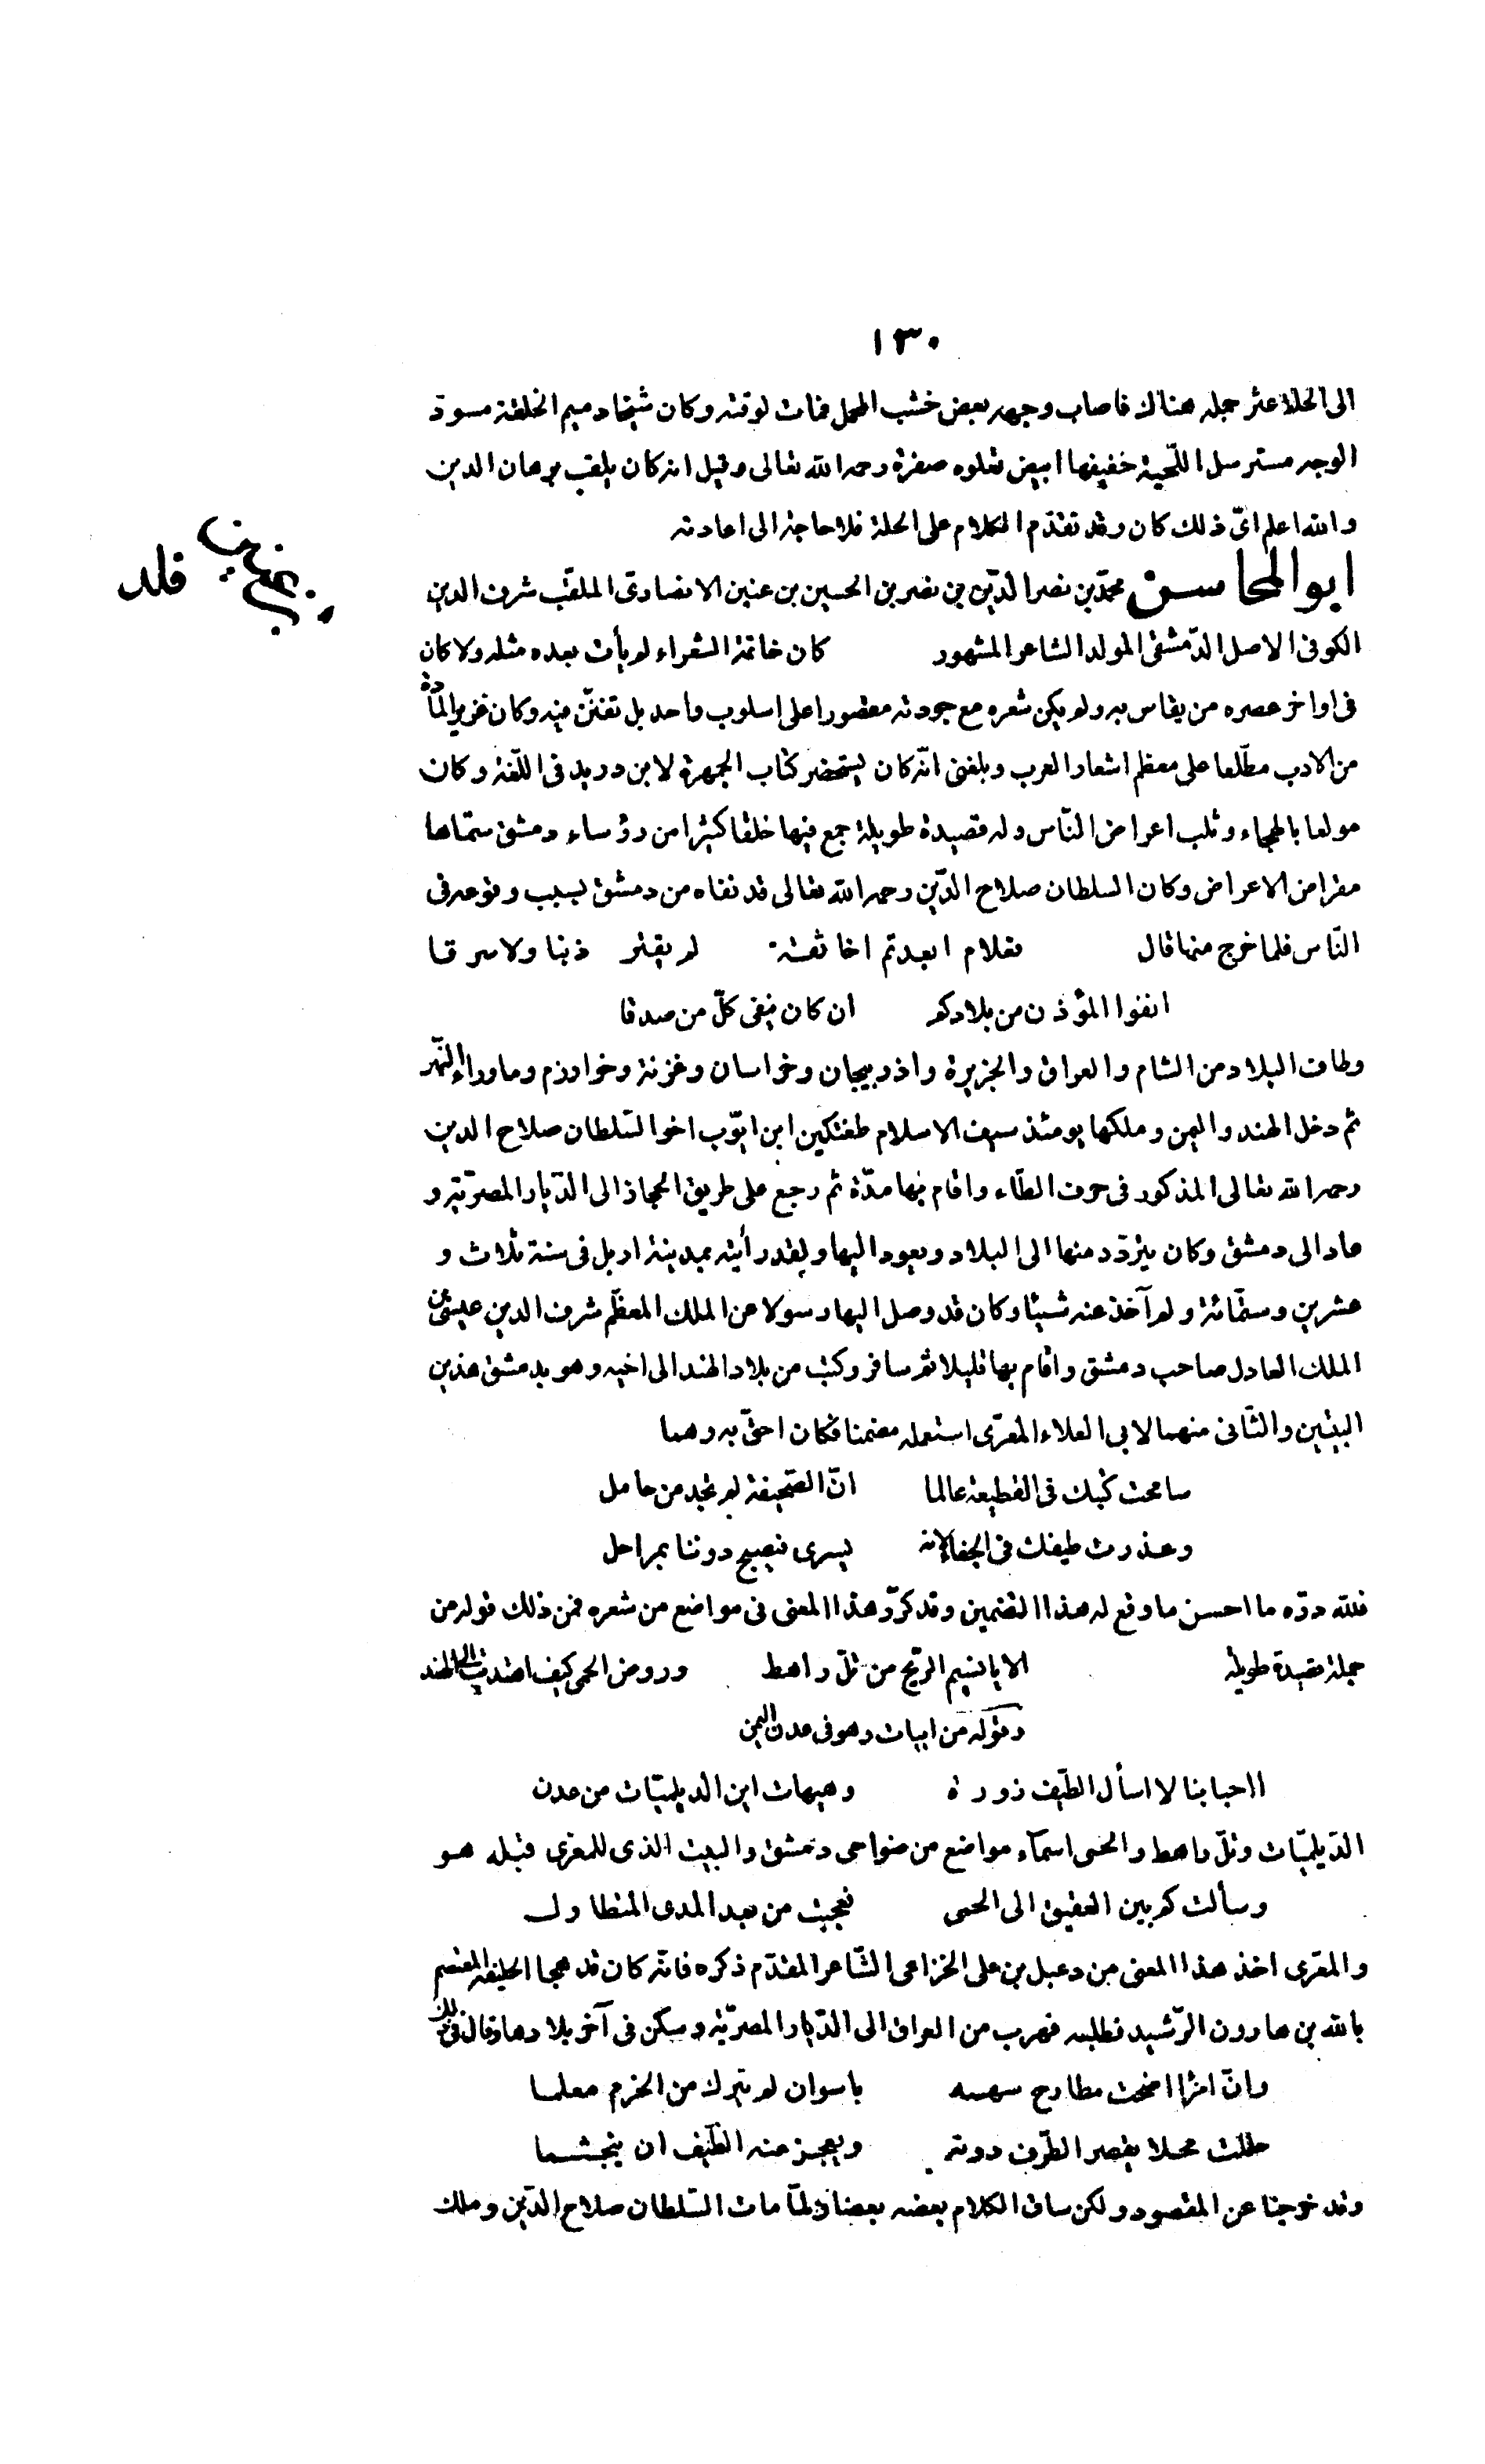 ١٣٠
الى الحلة عثر جمله هناك فاصاب وجهه بعض خشب المحمل فمات لوقته وكان شيخا دميم الخلقة مسودّ
الوجه مسترسل اللّحية خفيفها ابيض تعلوه صفرة رحمه الله تعالى وقيل انه كان يلقب برهان الدين
والله اعلم اىّ ذلك كان وقد تقدّم الكلام على الحلة فلا حاجة الى اعادته
ابو المحاسن محمّد بن نصر الدّين بن نصر بن الحسين بن عنين الانصارى الملقّب شرف الدين
الكوفى الاصل الدّمشقى المولد الشاعر المشهور كان خاتمة الشعراء لم يأت بعده مثله ولا كان
فى اواخر عصره من يقاس به ولم يكن شعره مع جودته مقصورا على اسلوب واحد بل تفنّن فيه وكان غزير المادّة
من الادب مطّلعا على معظم اشعار العرب وبلغنى انّه كان يستحضر كتاب الجمهرة لابن دريد فى اللّغة وكان
مولعا بالهجاء وثلب اعراض النّاس وله قصيدة طويلة جمع فيها خلقا كثيرا من رؤساء دمشق سمّاها
مقراض الاعراض وكان السلطان صلاح الدّين رحمه الله تعالى قد نفاه من دمشق بسبب وقوعه فى
النّاس فلما خرج منها قال فعلام ابعدتم اخا ثقة لم يقترف ذنبا ولا سرقا
انفوا المؤذن من بلادكم ان كان ينفى كلّ من صدقا
وطاف البلاد من الشام والعراق والجزيرة واذربيجان وخراسان وغزنة وخوارزم وماوراء النّهر
ثم دخل الهند واليمن وملكها يومئذ سيف الاسلام طغتكين ابن ايّوب اخو السّلطان صلاح الدين
رحمه الله تعالى المذكور فى حرف الطّاء واقام بها مدّة ثم رجع على طريق الحجاز الى الدّيار المصريّة و
عاد الى دمشق وكان يتردّد منها الى البلاد ويعود اليها ولقد رأيته بمدينة اربل فى سنة ثلاث و
عشرين وستّمائة ولم آخذ عنه شيئا وكان قد وصل اليها رسولا عن الملك المعظّم شرف الدين عيسى بن
الملك العادل صاحب دمشق واقام بها قليلا ثم سافر وكتب من بلاد الهند الى اخيه وهو بدمشق هذين
البيتين والثّانى منهما لابى العلاء المعرّى استعمله مضمنا فكان احقّ به وهما
سامحت كتبك فى القطيعة عالما انّ الصّحيفة لم تجد من حامل
وعذرت طيفك فى الجفاء لانه يسرى فيصبح دوننا بمراحل
فللّه درّه ما احسن ما وقع له هذا التضمين وقد كرّر هذا المعنى فى مواضع من شعره فمن ذلك قوله من
جملة قصيدة طويلة الا يا نسيم الرّيح من تلّ راهط وروض الحمى كيف اهتديت الى الهند
وقوله من ابيات وهو فى عدن اليمن
ااحبابنا لا اسأل الطّيف زورة وهيهات اين الديلميّات من عدن
الدّيلميّات وتلّ راهط والحمى اسمآء مواضع من ضواحى دمشق والبيت الذى للمعرى قبله هو
وسألت كم بين العقيق الى الحمى فعجبت من بعد المدى المتطاول
والمعرّى اخذ هذا المعنى من دعبل بن على الخزاعى الشّاعر المقدّم ذكره فانّه كان قد هجا الخليفة المعتصم
بالله بن هارون الرّشيد فطلبه فهرب من العراق الى الدّيار المصريّة وسكن فى آخر بلادها وقال فى ذلك
وانّ امرأ اضحت مطارح سهمه باسوان لم يترك من الحزم معلما
حللت محلا يقصر الطّرف دونه ويعجز عنه الطّيف ان يتجشّما
وقد خرجنا عن المقصود ولكن ساق الكلام بعضه بعضا ولمّا مات السّلطان صلاح الدّين وملك